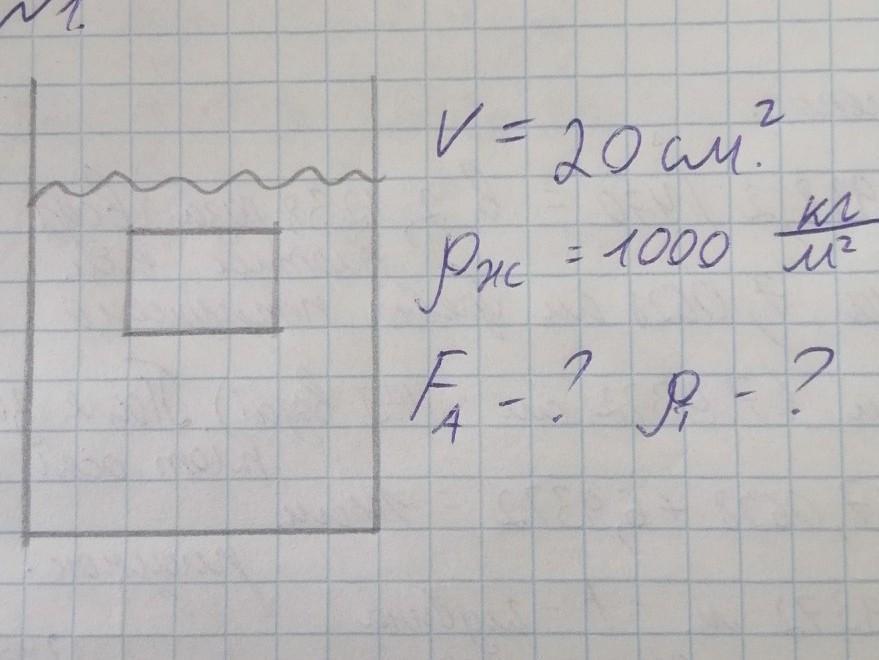 №1.
V = 20 см.²
ρж = 1000 кг/м²
F_A - ? ρ₁ - ?